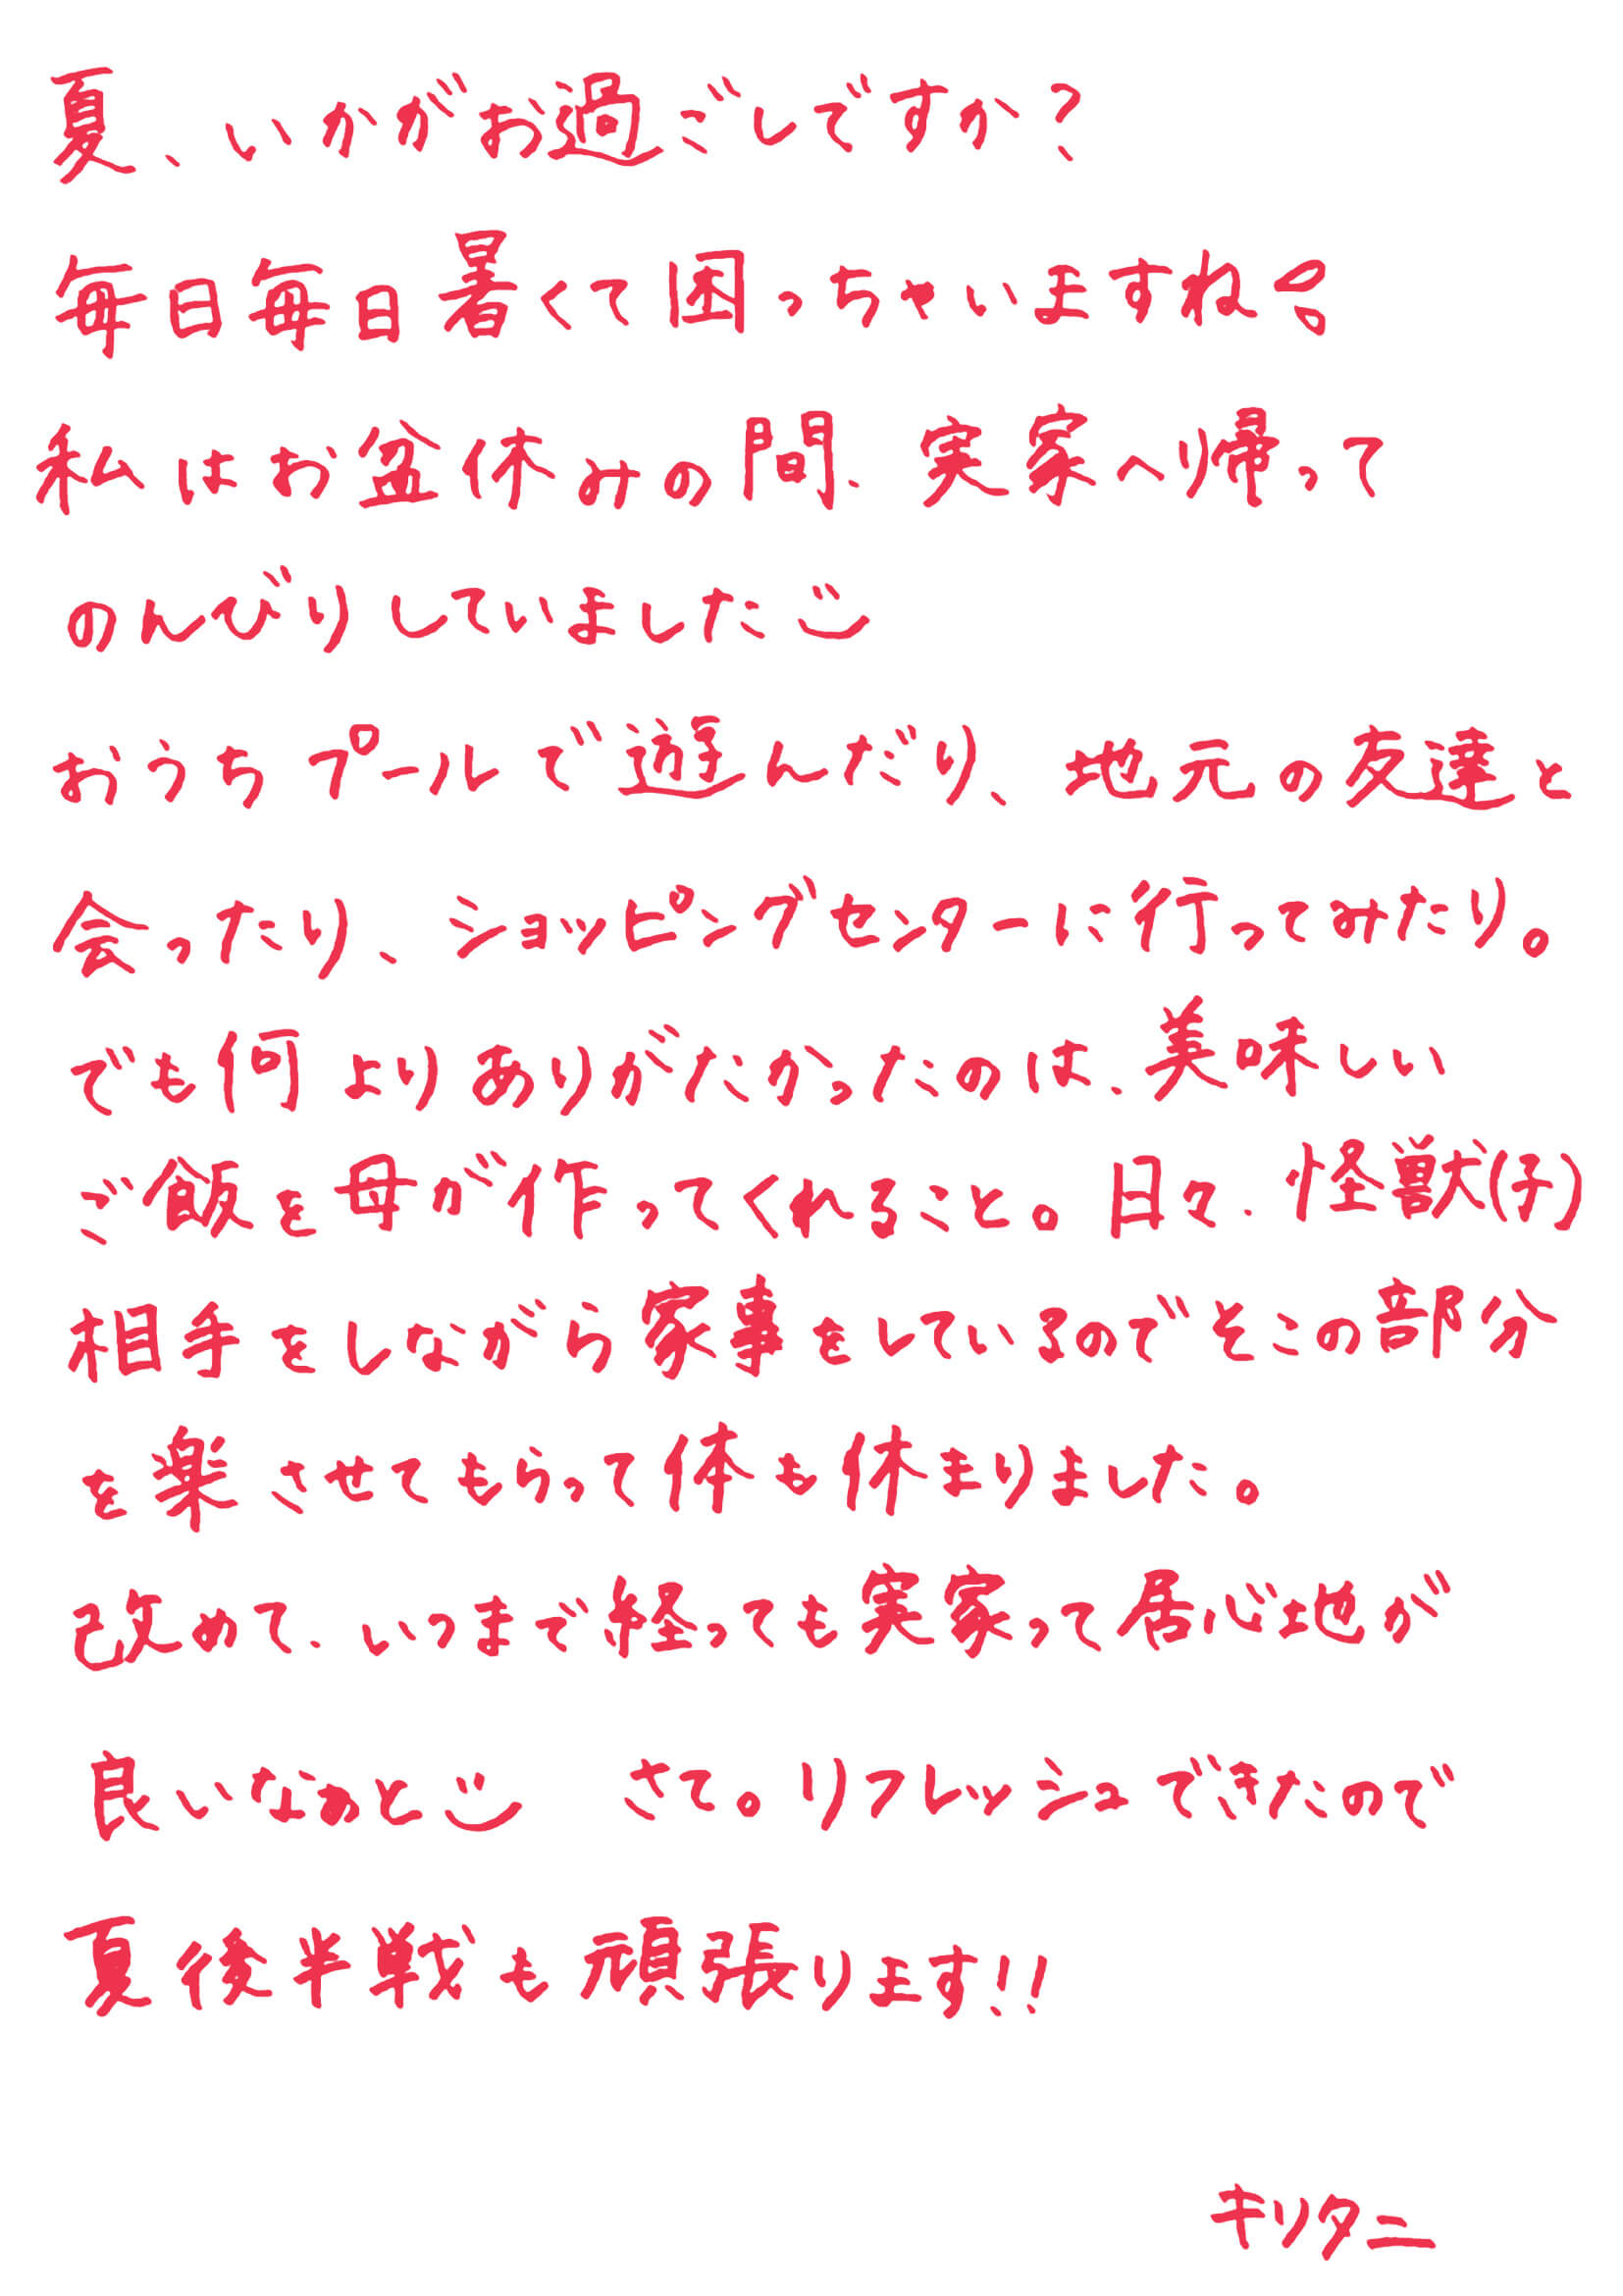 夏、いかがお過ごしですか?
毎日毎日暑くて困っちゃいますね
私はお盆休みの間、実家へ帰って
のんびりしていました
おうちプールで遊んだり、地元の友達と
会ったり、ショッピングセンターに行ってみたり。
でも何よりありがたかったのは、美味しい
ご飯を母が作ってくれること。日々、怪獣(子)
相手をしながら家事をしているのでそこの部分
を楽させてもらって体も休まりました。
改めて、いつまで経っても実家って居心地が
良いなぁと さて。リフレッシュできたので
夏後半戦も頑張ります!!
キリタニ